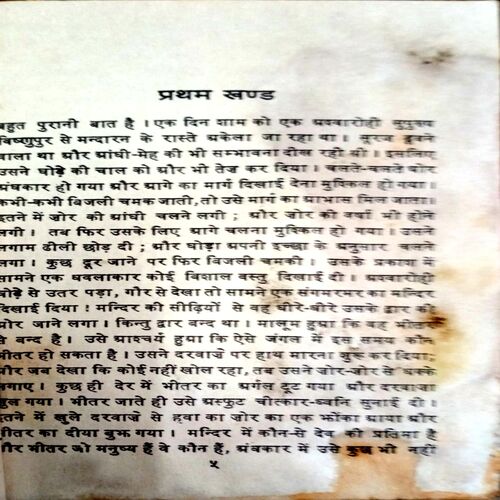 प्रथम खण्ड
बहुत पुरानी बात है । एक दिन शाम को एक अश्वारोही सुपुरुष
विष्णुपुर से मन्दारन के रास्ते अकेला जा रहा था । सूरज डूबने
वाला था और आंधी-मेह की भी सम्भावना दीख रही थी । इसलिए
उसने घोड़े की चाल को और भी तेज कर दिया । चलते-चलते घोर
अंधकार हो गया और आगे का मार्ग दिखाई देना मुश्किल हो गया ।
कभी-कभी बिजली चमक जाती, तो उसे मार्ग का आभास मिल जाता ।
इतने में ज़ोर की आंधी चलने लगी ; और ज़ोर की वर्षा भी होने
लगी । तब फिर उसके लिए आगे चलना मुश्किल हो गया । उसने
लगाम ढीली छोड़ दी ; और घोड़ा अपनी इच्छा के अनुसार चलने
लगा । कुछ दूर जाने पर फिर बिजली चमकी । उसके प्रकाश में
सामने एक धवलाकार कोई विशाल वस्तु दिखाई दी । अश्वारोही
घोड़े से उतर पड़ा, गौर से देखा तो सामने एक संगमरमर का मन्दिर
दिखाई दिया ! मन्दिर की सीढ़ियों से वह धीरे-धीरे उसके द्वार की
ओर जाने लगा । किन्तु द्वार बन्द था । मालूम हुआ कि वह भीतर
से बन्द है । उसे आश्चर्य हुआ कि ऐसे जंगल में इस समय कौन
भीतर हो सकता है । उसने दरवाज़े पर हाथ मारना शुरू कर दिया;
और जब देखा कि कोई नहीं खोल रहा, तब उसने ज़ोर-ज़ोर से धक्के
लगाए । कुछ ही देर में भीतर का अर्गल टूट गया और दरवाज़ा
खुल गया । भीतर जाते ही उसे अस्फुट चीत्कार-ध्वनि सुनाई दी ।
इतने में खुले दरवाज़े से हवा का ज़ोर का एक झोंका आया और
भीतर का दीया बुझ गया । मन्दिर में कौन-से देव की प्रतिमा है
और भीतर जो मनुष्य हैं वे कौन हैं, अंधकार में उसे कुछ भी नहीं
५